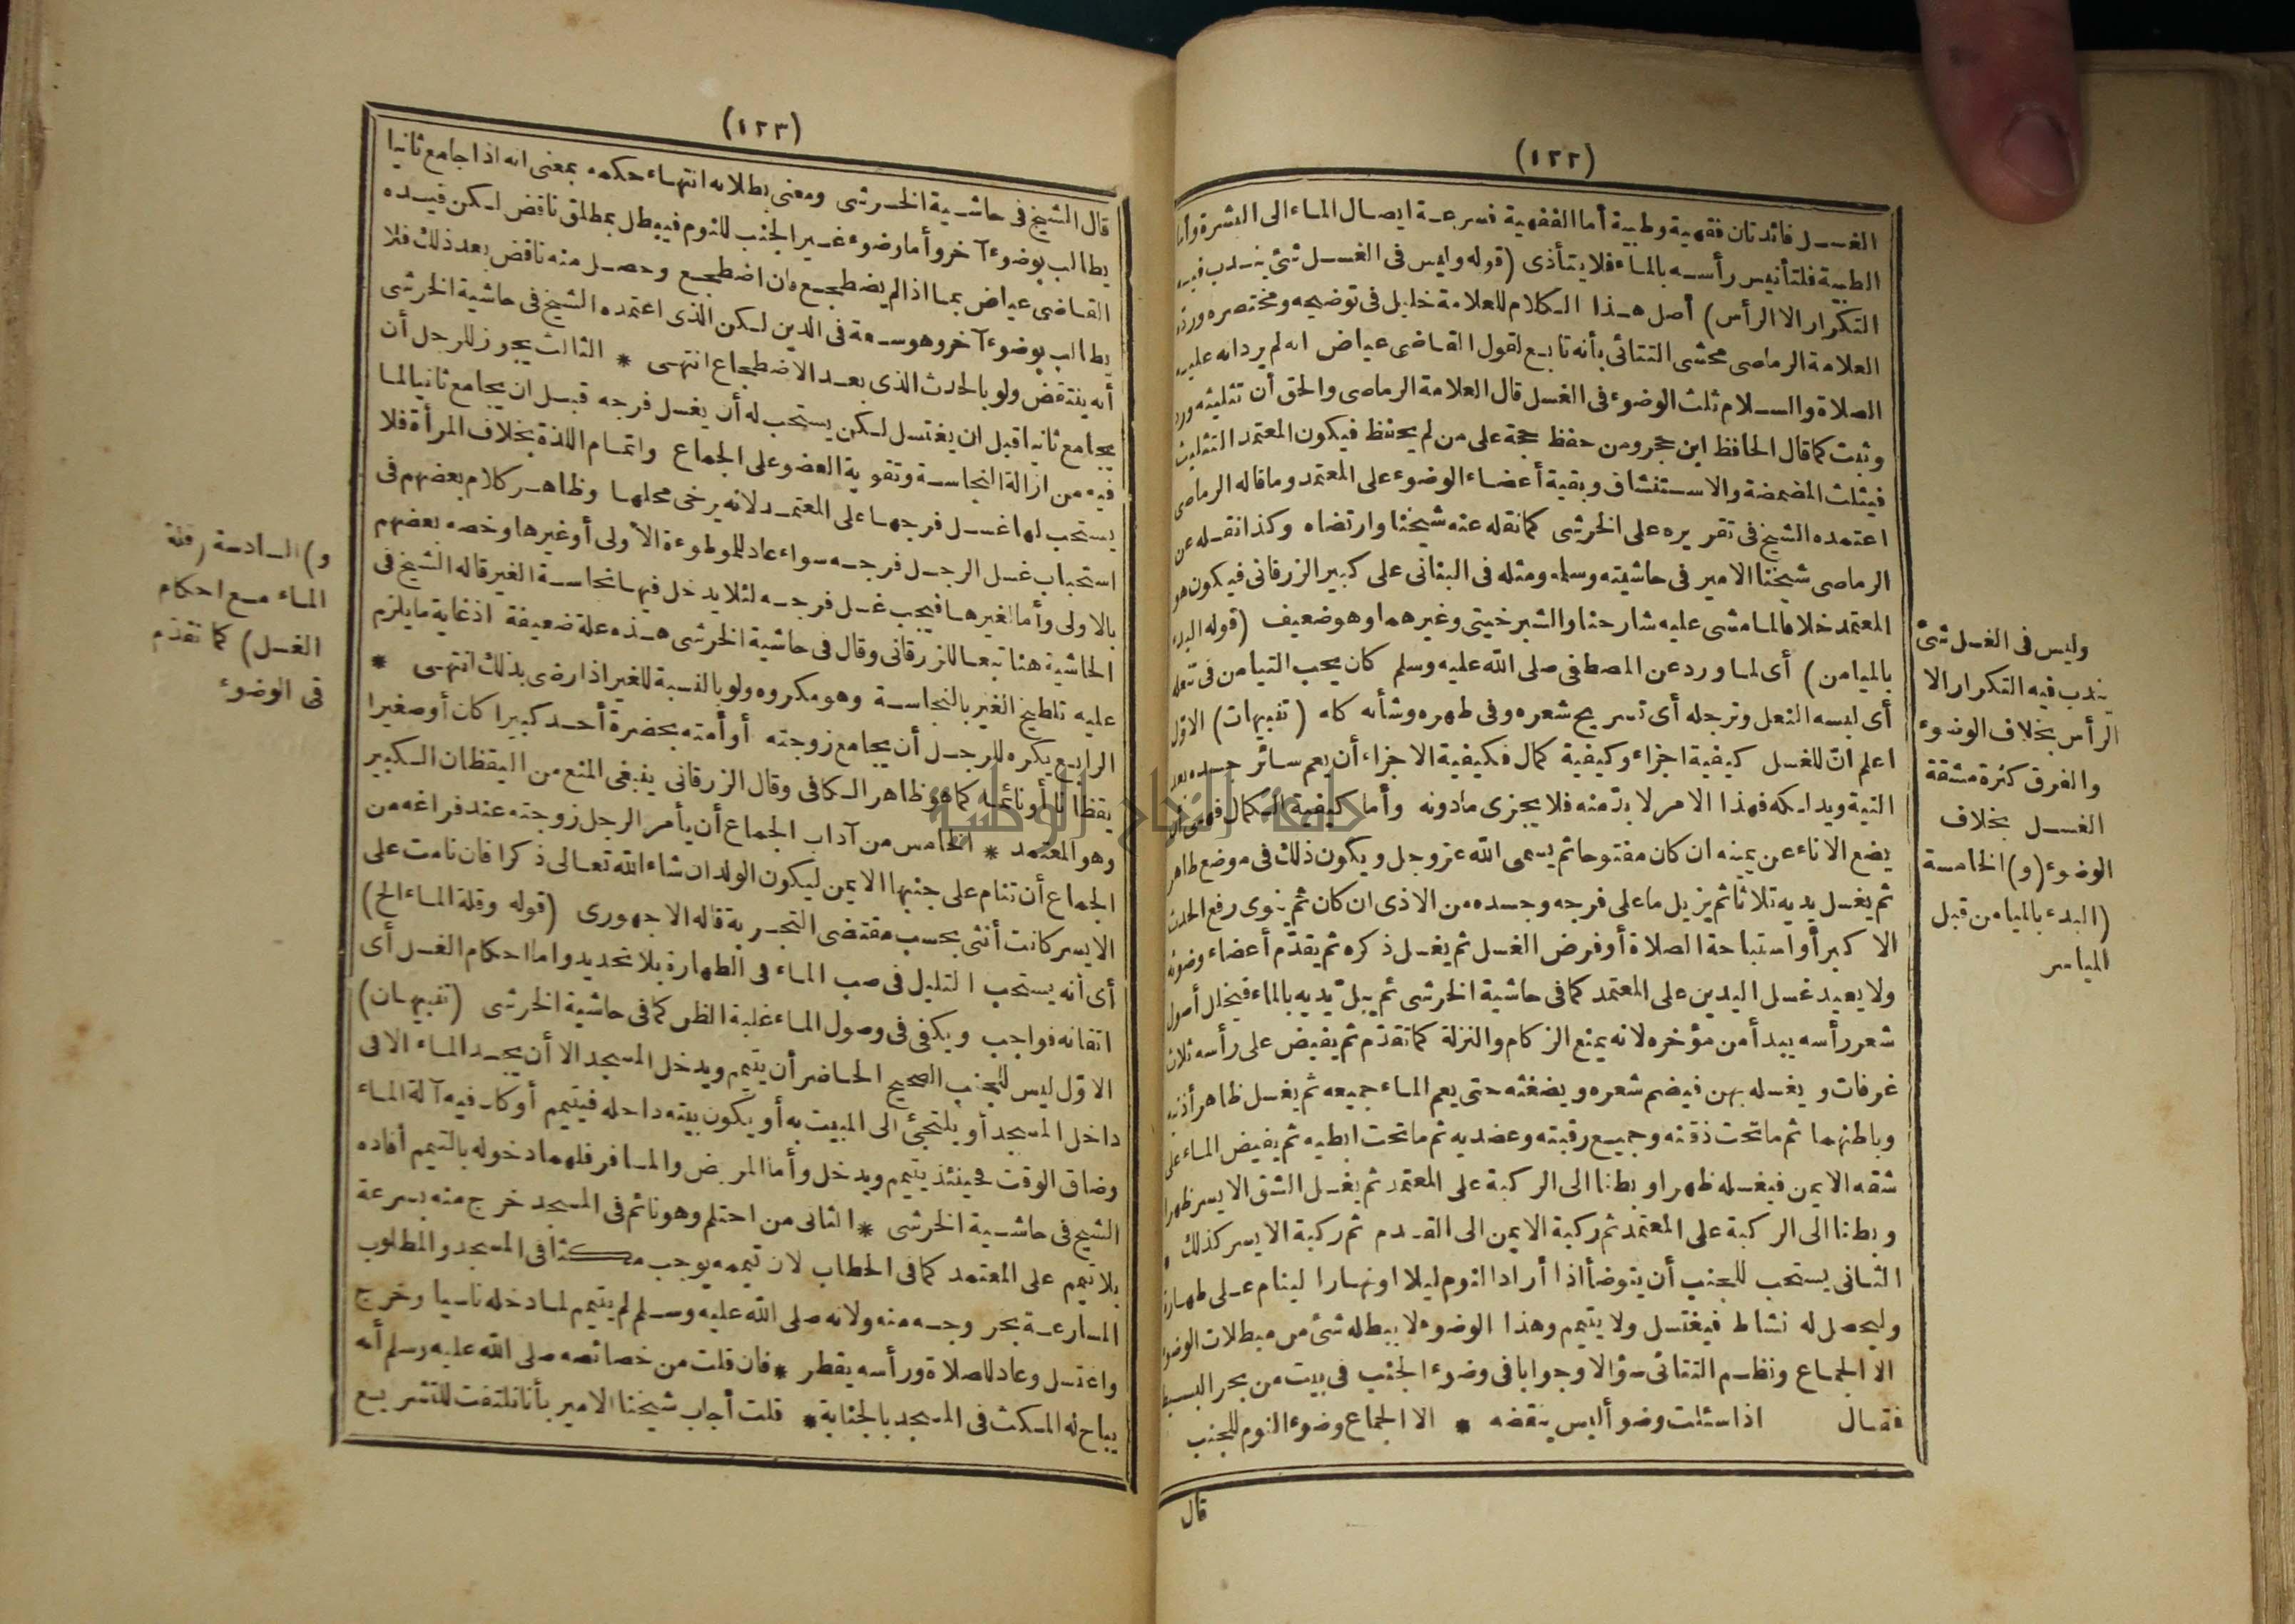 (١٢٢)
الغسل فائدتان فقهية وطبية أما الفقهية فسرعة ايصال الماء الى البشرة وأما
الطبية فلتأنيس رأسه بالماء فلا يتأذى (قوله وليس فى الغسل شئ يندب فيه
التكرار الا الرأس) أصل هذا الكلام للعلامة خليل فى توضيحه ومختصره ورده
العلامة الرماصى محشى التتائى بأنه تابع لقول القاضى عياض انه لم يرد انه عليه
الصلاة والسلام ثلث الوضوء فى الغسل قال العلامة الرماصى والحق أن تثليثه ورد
وثبت كما قال الحافظ ابن حجر ومن حفظ حجة على من لم يحفظ فيكون المعتمد التثليث
فيثلث المضمضة والاستنشاق وبقية أعضاء الوضوء على المعتمد وما قاله الرماصى
اعتمده الشيخ فى تقريره على الخرشى كما نقله عنه شيخنا وارتضاه وكذا نقله عن
الرماصى شيخنا الامير فى حاشيته وسلمه ومثله فى البنانى على كبير الزرقانى فيكون هو
المعتمد خلافا لما مشى عليه شارحنا والشبرخيتى وغيرهما وهو ضعيف (قوله البدء
بالميامن) أى لما ورد عن المصطفى صلى الله عليه وسلم كان يحب التيامن فى تنعله
أى لبسه النعل وترجله أى تسريح شعره وفى طهره وشأنه كله (تنبيهات) الاول
اعلم ان للغسل كيفية اجزاء وكيفية كمال فكيفية الاجزاء أن يعم سائر جسده بعد
النية ويدلكه فهذا الامر لا بد منه فلا يجزى مادونه وأما كيفية الكمال فهى أن
يضع الاناء عن يمينه ان كان مفتوحا ثم يسمى الله عز وجل ويكون ذلك فى موضع طاهر
ثم يغسل يديه ثلاثا ثم يزيل ما على فرجه وجسده من الاذى ان كان ثم ينوى رفع الحدث
الاكبر أو استباحة الصلاة أو فرض الغسل ثم يغسل ذكره ثم يقدّم أعضاء وضوئه
ولا يعيد غسل اليدين على المعتمد كما فى حاشية الخرشى ثم يبلّ يديه بالماء فيخلل أصول
شعر رأسه يبدأ من مؤخره لانه يمنع الزكام والنزلة كما تقدّم ثم يفيض على رأسه ثلاث
غرفات ويغسله بهن فيضم شعره ويضغثه حتى يعم الماء جميعه ثم يغسل ظاهر أذنيه
وباطنهما ثم ما تحت ذقنه وجميع رقبته وعضديه ثم ما تحت ابطيه ثم يفيض الماء على
شقه الايمن فيغسله ظهرا وبطنا الى الركبة على المعتمد ثم يغسل الشق الايسر ظهرا
وبطنا الى الركبة على المعتمد ثم ركبة الايمن الى القدم ثم ركبة الايسر كذلك *
الثانى يستحب للجنب أن يتوضأ اذا أراد النوم ليلا او نهارا لينام على طهارة
وليحصل له نشاط فيغتسل ولا يتيمم وهذا الوضوء لا يبطله شئ من مبطلات الوضوء
الا الجماع ونظم التتائى سؤالا وجوابا فى وضوء الجنب فى بيت من بحر البسيط
فقال اذا سئلت وضوأ ليس ينقضه * الا الجماع وضوء النوم للجنب
قال
وليس فى الغسل شئ
يندب فيه التكرار الا
الرأس بخلاف الوضوء
والفرق كثرة مشقة
الغسل بخلاف
الوضوء (و) الخامسة
(البدء بالميامن قبل
المياسر
(١٢٣)
قال الشيخ فى حاشية الخرشى ومعنى بطلانه انتهاء حكمه بمعنى انه اذا جامع ثانيا
يطالب بوضوء آخر وأما وضوء غير الجنب للنوم فيبطل بمطلق ناقض لكن قيده
القاضى عياض بما اذا لم يضطجع فان اضطجع وحصل منه ناقض بعد ذلك فلا
يطالب بوضوء آخر وهو سعة فى الدين لكن الذى اعتمده الشيخ فى حاشية الخرشى
أنه ينتقض ولو بالحدث الذى بعد الاضطجاع انتهى * الثالث يجوز للرجل أن
يجامع ثانيا قبل ان يغتسل لكن يستحب له أن يغسل فرجه قبل ان يجامع ثانيا لما
فيه من ازالة النجاسة وتقوية العضو على الجماع واتمام اللذة بخلاف المرأة فلا
يستحب لها غسل فرجها على المعتمد لانه يرخى محلها وظاهر كلام بعضهم فى
استحباب غسل الرجل فرجه سواء عاد للموطوءة الأولى أو غيرها وخصه بعضهم
بالاولى وأما لغيرها فيجب غسل فرجه لئلا يدخل فيها نجاسة الغير قاله الشيخ فى
الحاشية هنا تبعا للزرقانى وقال فى حاشية الخرشى هذه علة ضعيفة اذ غاية ما يلزم
عليه تلطيخ الغير بالنجاسة وهو مكروه ولو بالنسبة للغير اذا رضى بذلك انتهى *
الرابع يكره للرجل أن يجامع زوجته أو أمته بحضرة أحد كبيرا كان أو صغيرا
يقظانا أو نائما كما هو ظاهر الكافى وقال الزرقانى ينبغى المنع من اليقظان الكبير
وهو المعتمد * الخامس من آداب الجماع أن يأمر الرجل زوجته عند فراغه من
الجماع أن تنام على جنبها الايمن ليكون الولد ان شاء الله تعالى ذكرا فان نامت على
الايسر كانت أنثى بحسب مقتضى التجربة قاله الاجهورى (قوله وقلة الماء الخ)
أى أنه يستحب التقليل فى صب الماء فى الطهارة بلا تحديد واما احكام الغسل أى
اتقانه فواجب ويكفى فى وصول الماء غلبة الظن كما فى حاشية الخرشى (تنبيهان)
الاول ليس للجنب الصحيح الحاضر أن يتيمم ويدخل المسجد الا أن يجد الماء الا فى
داخل المسجد أو يلتجئ الى المبيت به أو يكون بيته داخله فيتيمم أو كان فيه آلة الماء
وضاق الوقت فحينئذ يتيمم ويدخل وأما المريض والمسافر فلهما دخوله بالتيمم أفاده
الشيخ فى حاشية الخرشى * الثانى من احتلم وهو نائم فى المسجد خرج منه بسرعة
بلا تيمم على المعتمد كما فى الحطاب لان تيممه يوجب مكثا فى المسجد والمطلوب
المسارعة بخروجه منه ولانه صلى الله عليه وسلم لم يتيمم لما دخله ناسيا وخرج
واغتسل وعاد للصلاة ورأسه يقطر * فان قلت من خصائصه صلى الله عليه وسلم أنه
يباح له المكث فى المسجد بالجنابة * قلت أجاب شيخنا الامير بأنا نلتفت للتشريع
و) السادسة (قلة
الماء مع احكام
الغسل) كما تقدّم
فى الوضوء